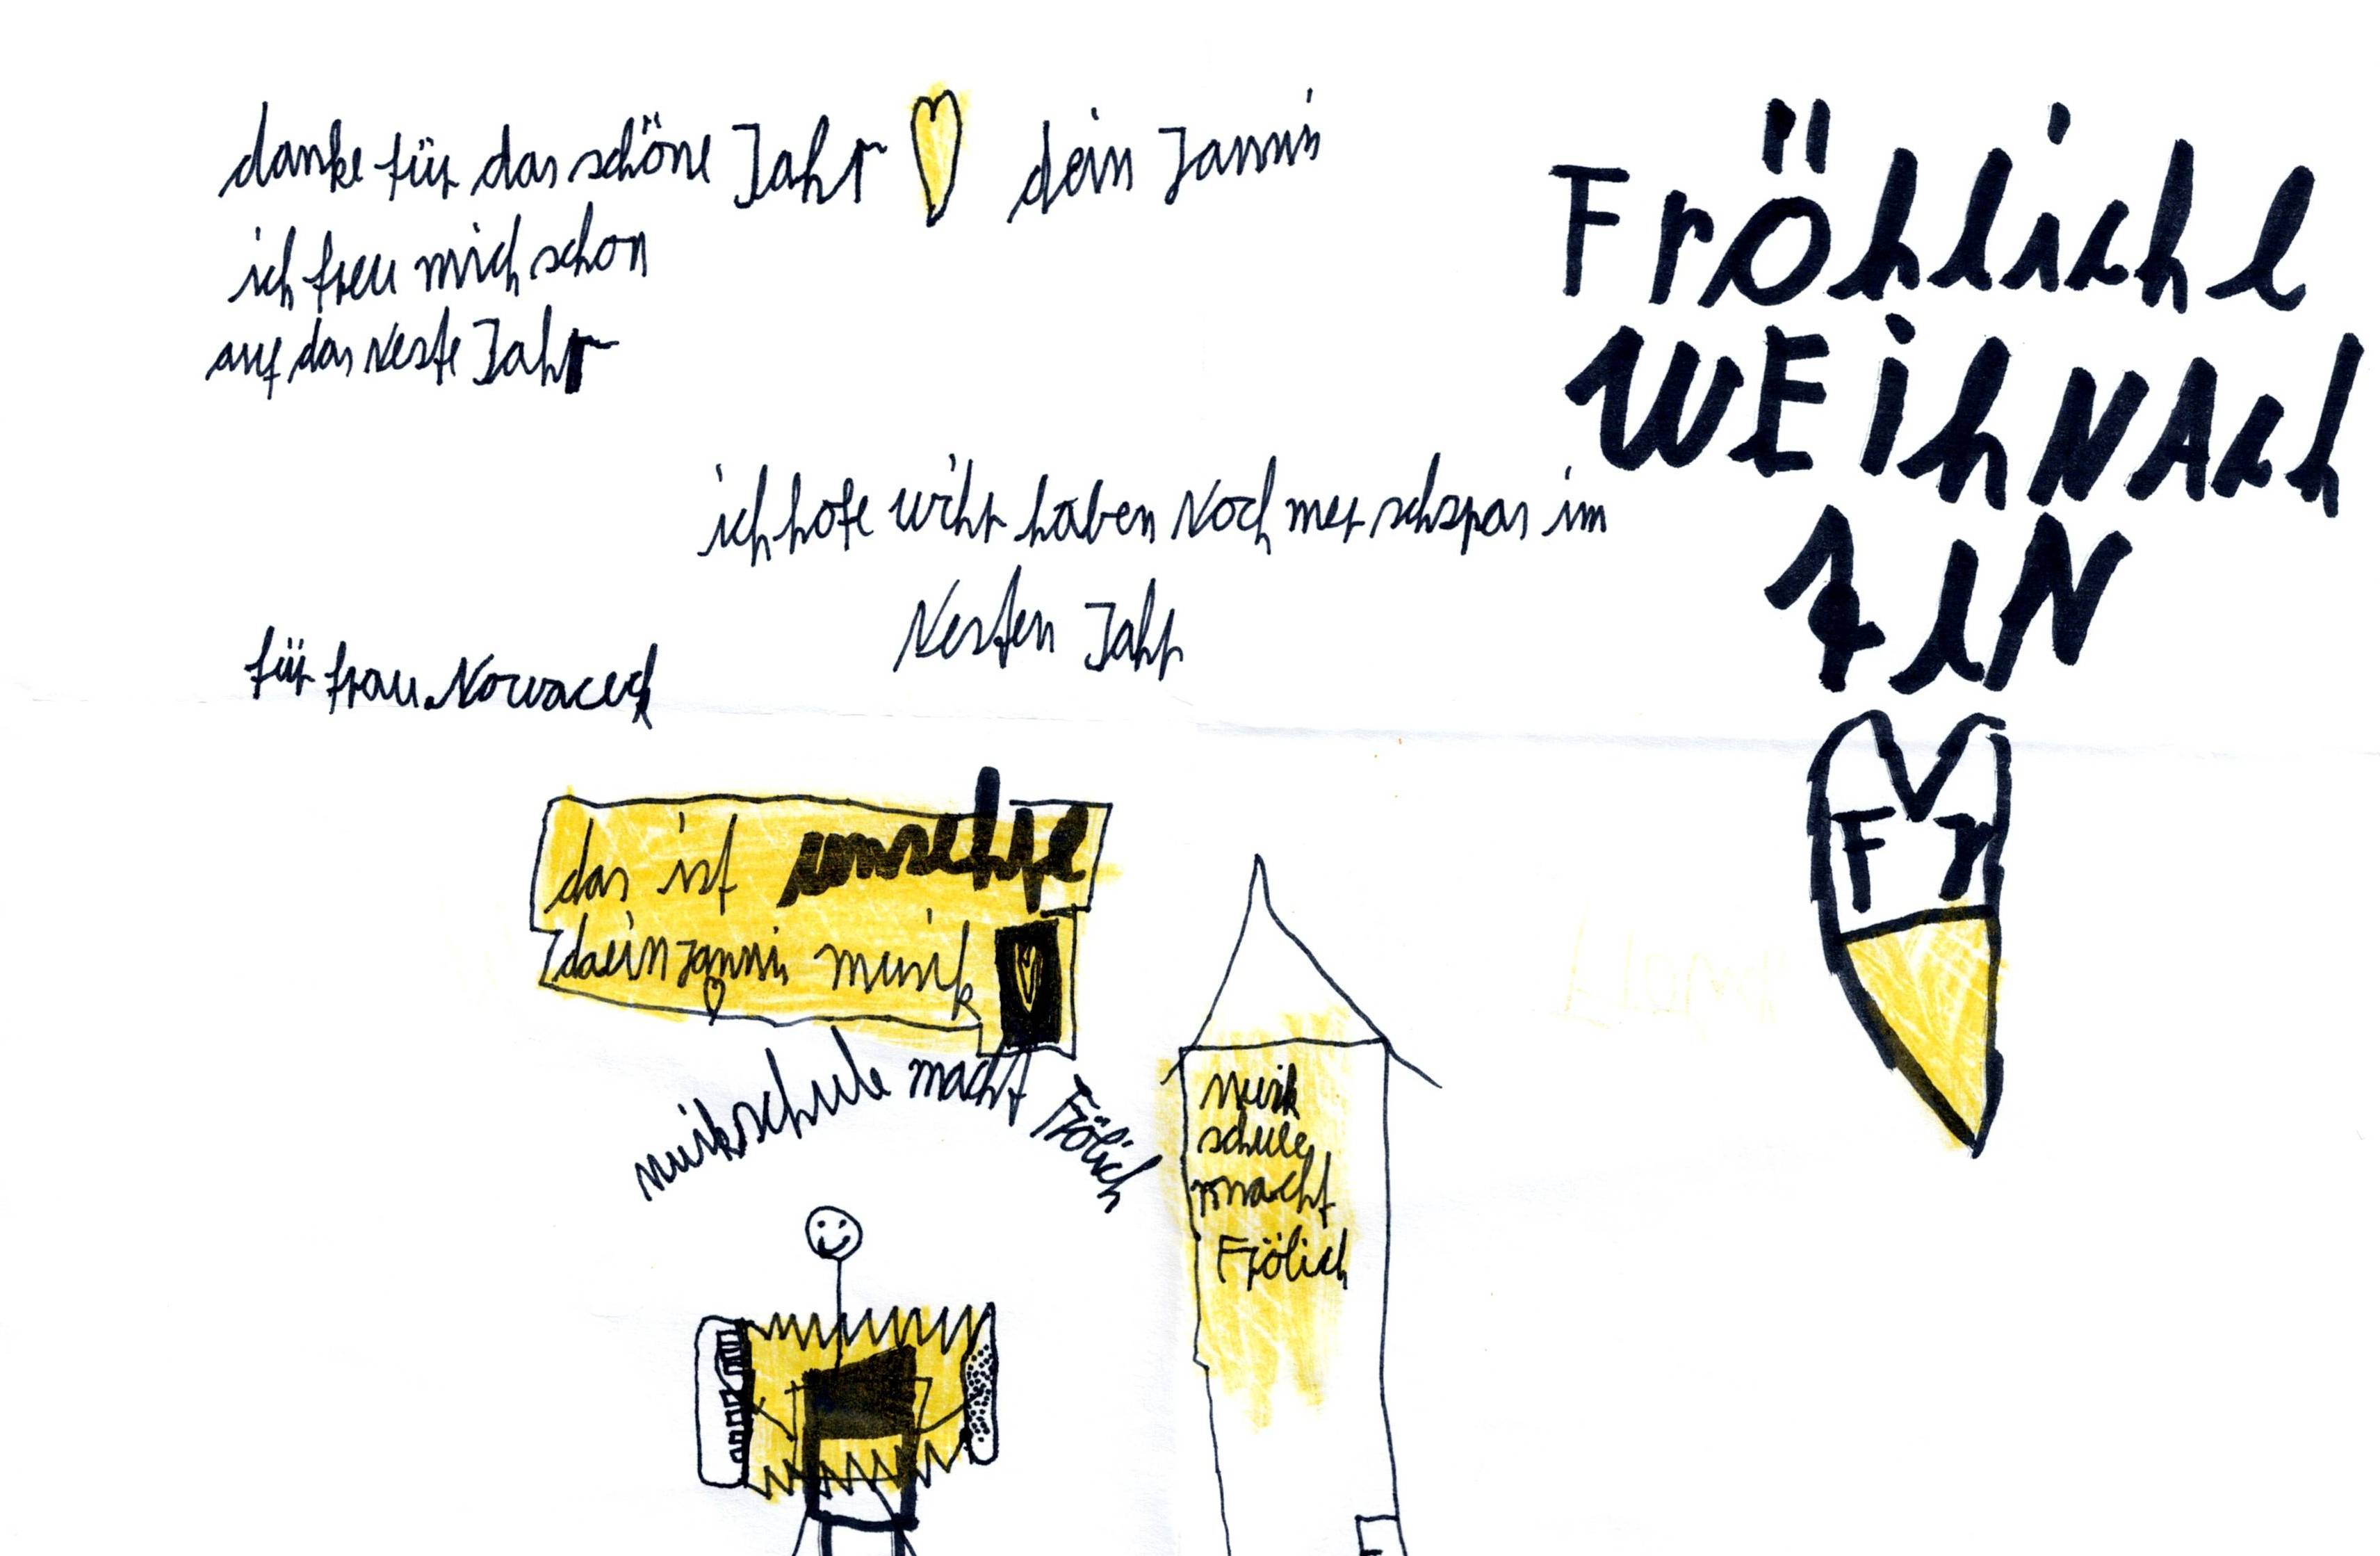 danke für das schöne Jahr dein Jannis
ich freu mich schon
auf das Neste Jahr
ich hofe wihr haben Noch mer schspas im
Nesten Jahr
für frau Nowaceck
FröhlichE
WEihNAch
tEN
F r
das ist
daein Jannis musik
musikschule macht Frölich
Musik
schule
macht
Frölich